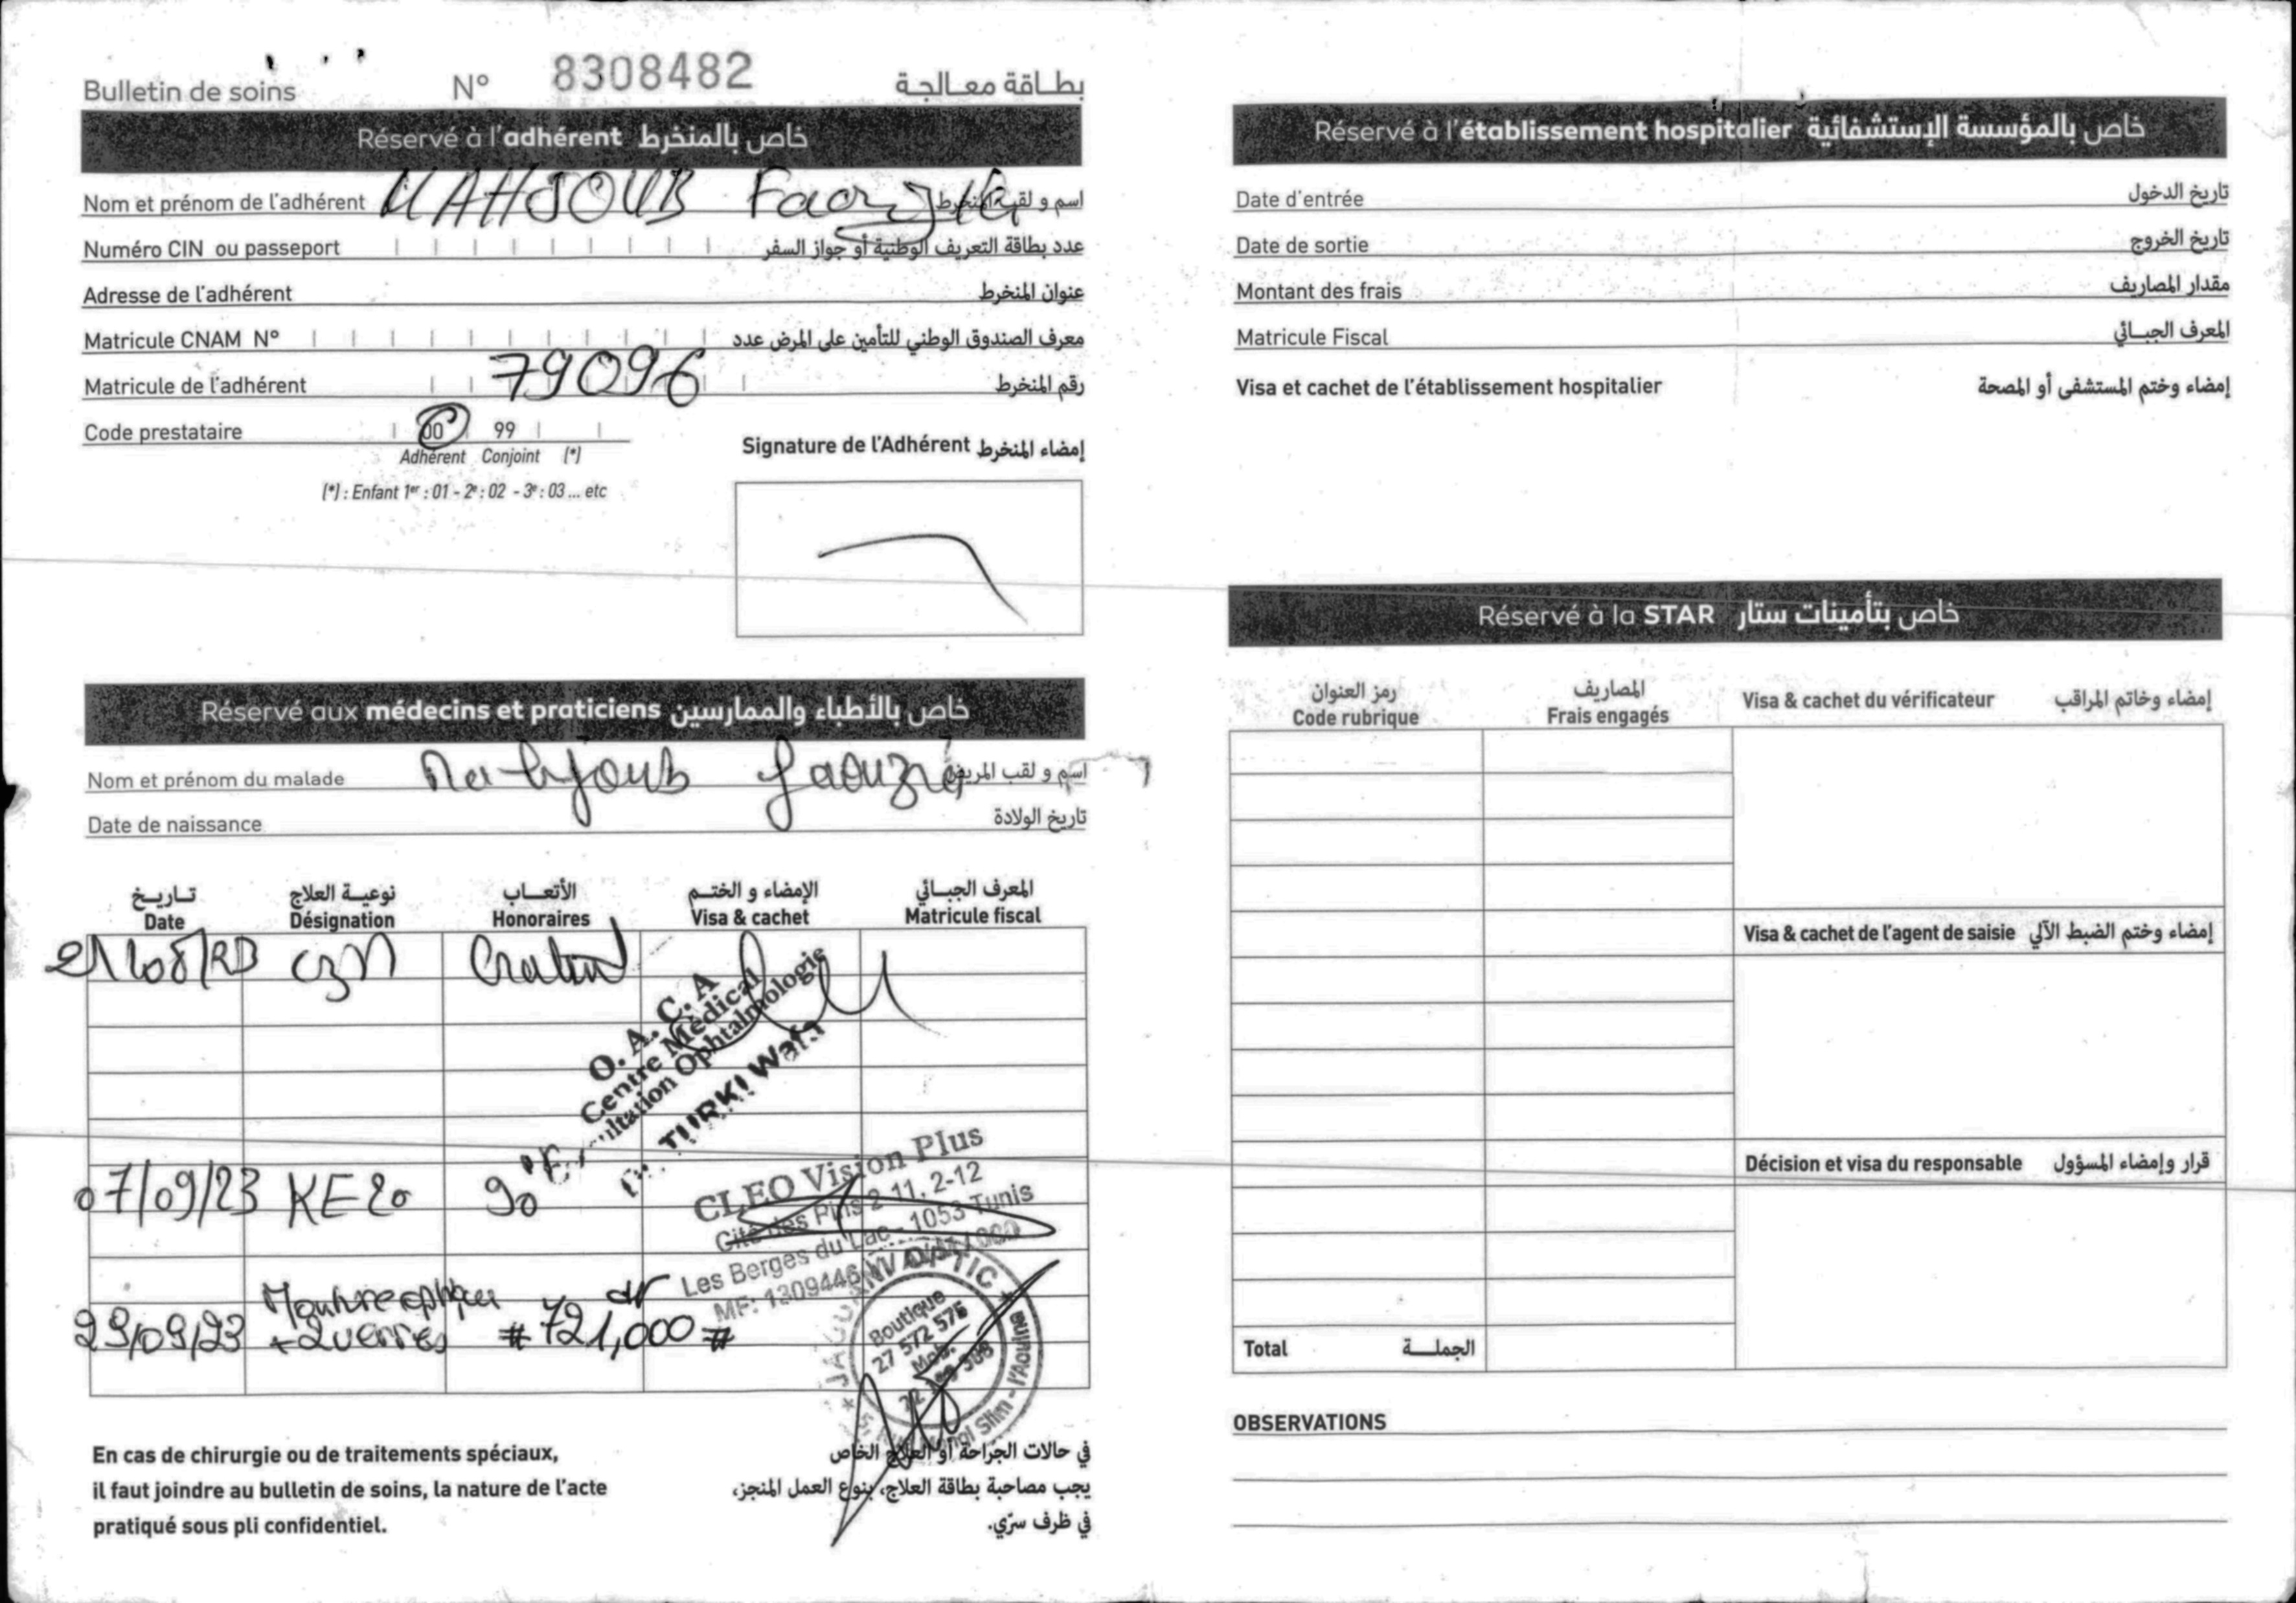 Bulletin de soins N° 8308482 بطاقة معالجة
Réservé à l'adhérent خاص بالمنخرط
Nom et prénom de l'adhérent MAHJOUB Faouzia اسم و لقب المنخرط
Numéro CIN ou passeport عدد بطاقة التعريف الوطنية أو جواز السفر
Adresse de l'adhérent عنوان المنخرط
Matricule CNAM N° معرف الصندوق الوطني للتأمين على المرض عدد
Matricule de l'adhérent 79096 رقم المنخرط
Code prestataire 00 99
Adhérent Conjoint (*)
(*) : Enfant 1er : 01 - 2e : 02 - 3e : 03 ... etc
Signature de l'Adhérent إمضاء المنخرط
Réservé aux médecins et praticiens خاص بالأطباء والممارسين
Nom et prénom du malade Mahjoub Faouzia اسم و لقب المريض
Date de naissance تاريخ الولادة
تاريخ نوعية العلاج الأتعاب الإمضاء و الختم المعرف الجبائي
Date Désignation Honoraires Visa & cachet Matricule fiscal
O. A. C. A
Centre Médical
Ophtalmologie
Dr. TURKI Wafa
07/09/23 KE20 90
CLEO Vision Plus
Cité des Pins 2-11, 2-12
Les Berges du Lac - 1053 Tunis
MF: 1309446
29/09/23 Monture optique + 2 verres # 721,000 # dt
OPTIC
Boutique
27 572 576
Mob.
En cas de chirurgie ou de traitements spéciaux,
il faut joindre au bulletin de soins, la nature de l'acte
pratiqué sous pli confidentiel.
في حالات الجراحة أو العلاج الخاص
يجب مصاحبة بطاقة العلاج، بنوع العمل المنجز،
في ظرف سرّي.
Réservé à l'établissement hospitalier خاص بالمؤسسة الإستشفائية
Date d'entrée تاريخ الدخول
Date de sortie تاريخ الخروج
Montant des frais مقدار المصاريف
Matricule Fiscal المعرف الجبائي
Visa et cachet de l'établissement hospitalier إمضاء وختم المستشفى أو المصحة
Réservé à la STAR خاص بتأمينات ستار
رمز العنوان المصاريف
Code rubrique Frais engagés Visa & cachet du vérificateur إمضاء وخاتم المراقب
Visa & cachet de l'agent de saisie إمضاء وختم الضبط الآلي
Décision et visa du responsable قرار وإمضاء المسؤول
Total الجملة
OBSERVATIONS